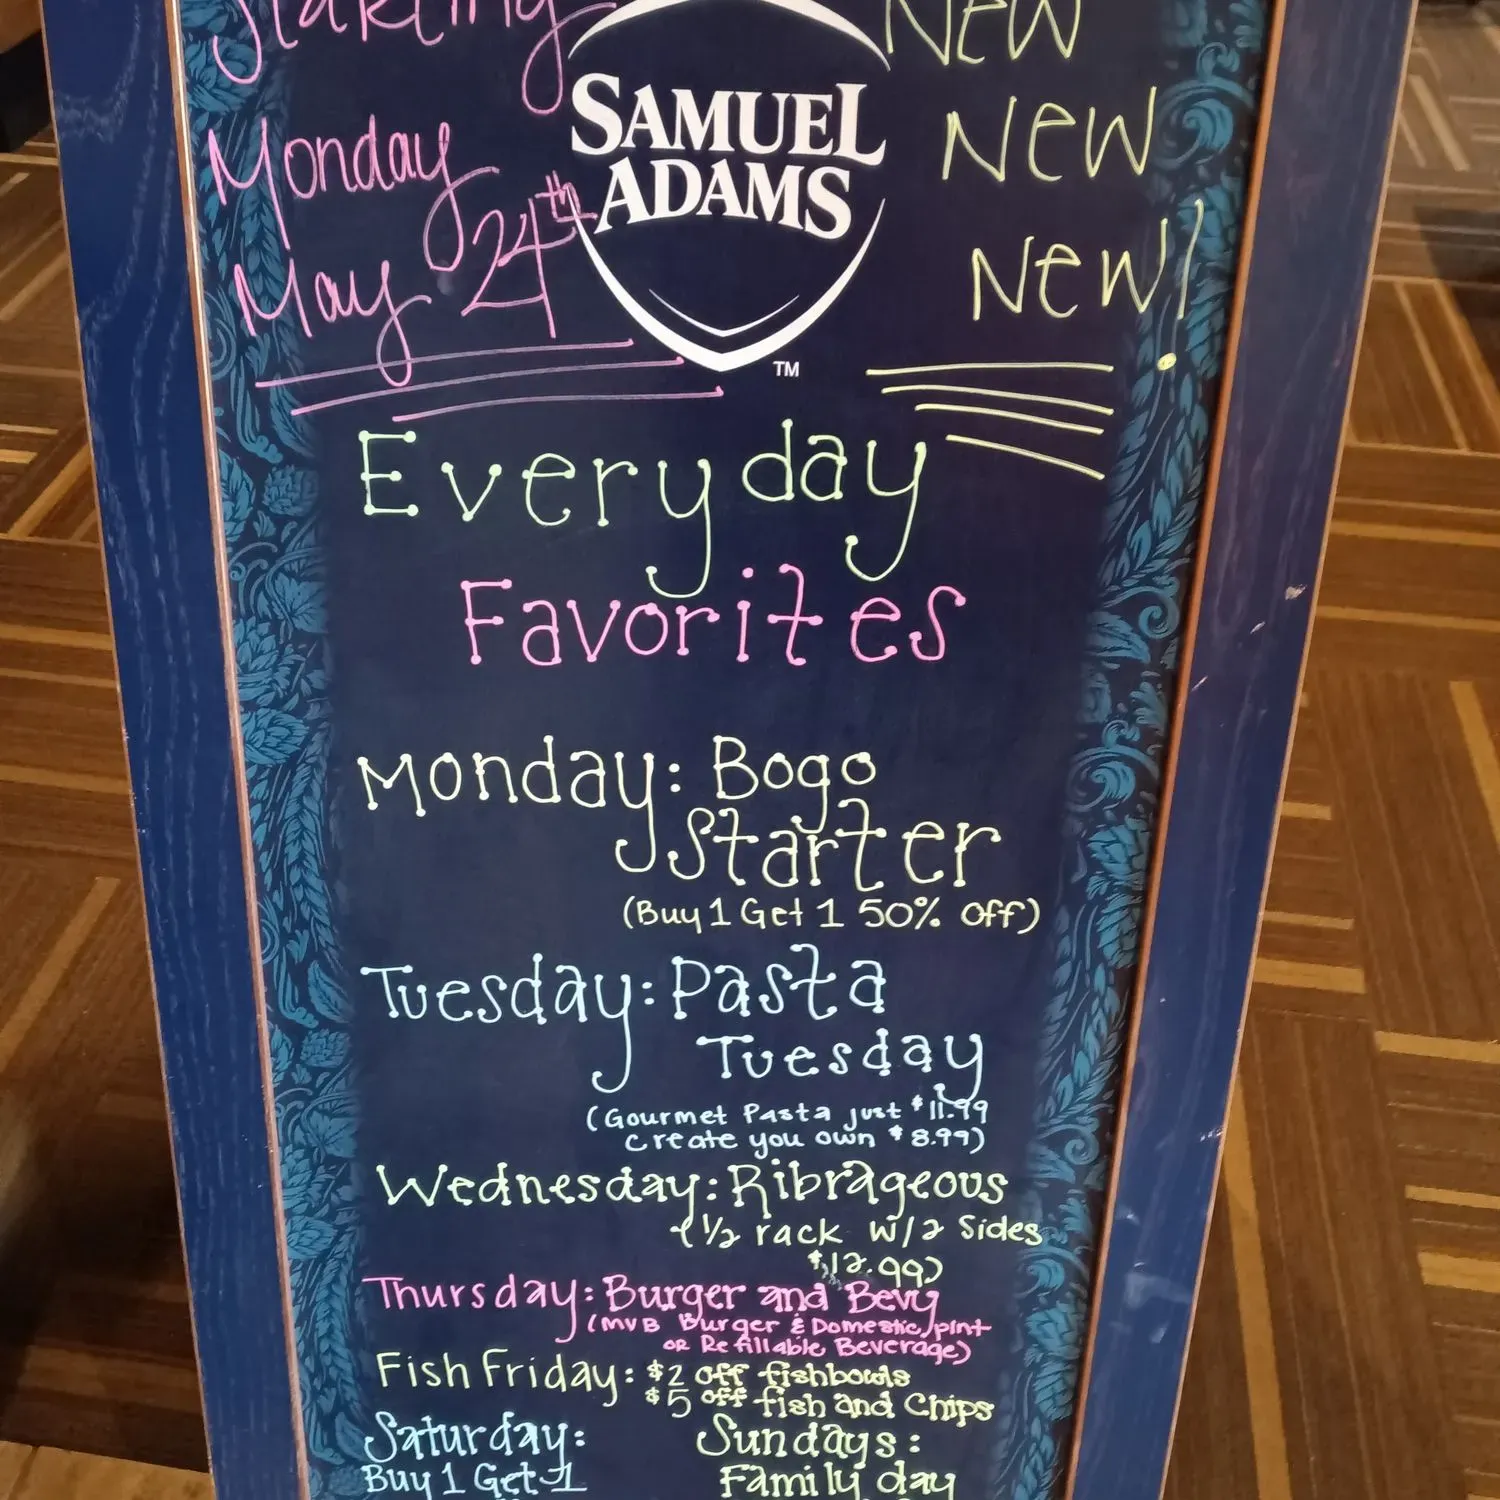 Starting
Monday
May 24th
SAMUEL
ADAMS
TM
New
New
New!
Everyday
Favorites
Monday: Bogo
Starter
(Buy 1 Get 1 50% off)
Tuesday: Pasta
Tuesday
(Gourmet Pasta just $11.99
create you own $8.99)
Wednesday: Ribrageous
(1/2 rack w/2 Sides
$12.99)
Thursday: Burger and Bevy
(MVB Burger & Domestic pint
or Refillable Beverage)
Fish Friday: $2 off fishbowls
$5 off fish and Chips
Saturday:
Buy 1 Get 1
Sundays:
Family day